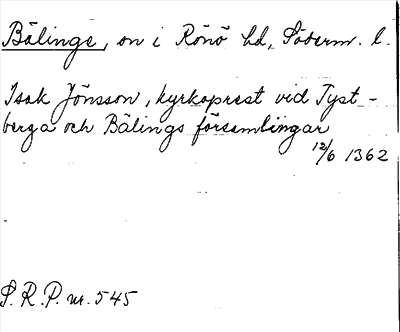 Bälinge, sn i Rönö hd, Söderm. l.
Isak Jönsson, kyrkoprest vid Tyst-
berga och Bälings församlingar
12/6 1362
S.R.P. nr. 545